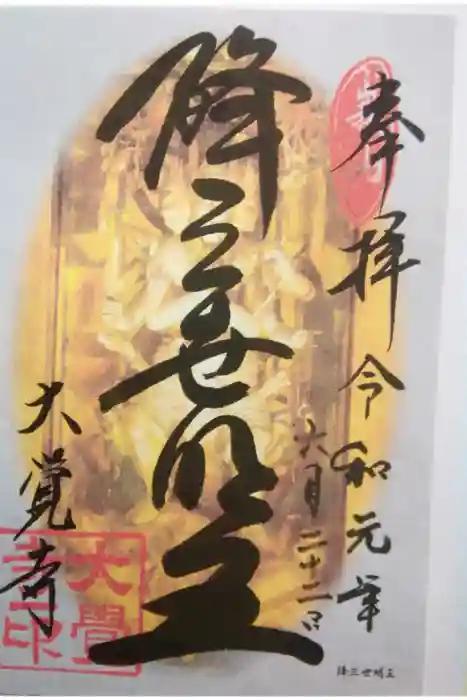 奉拝 令和元年
六月二十二日
降三世明王
大覚寺
大覺寺印
降三世明王